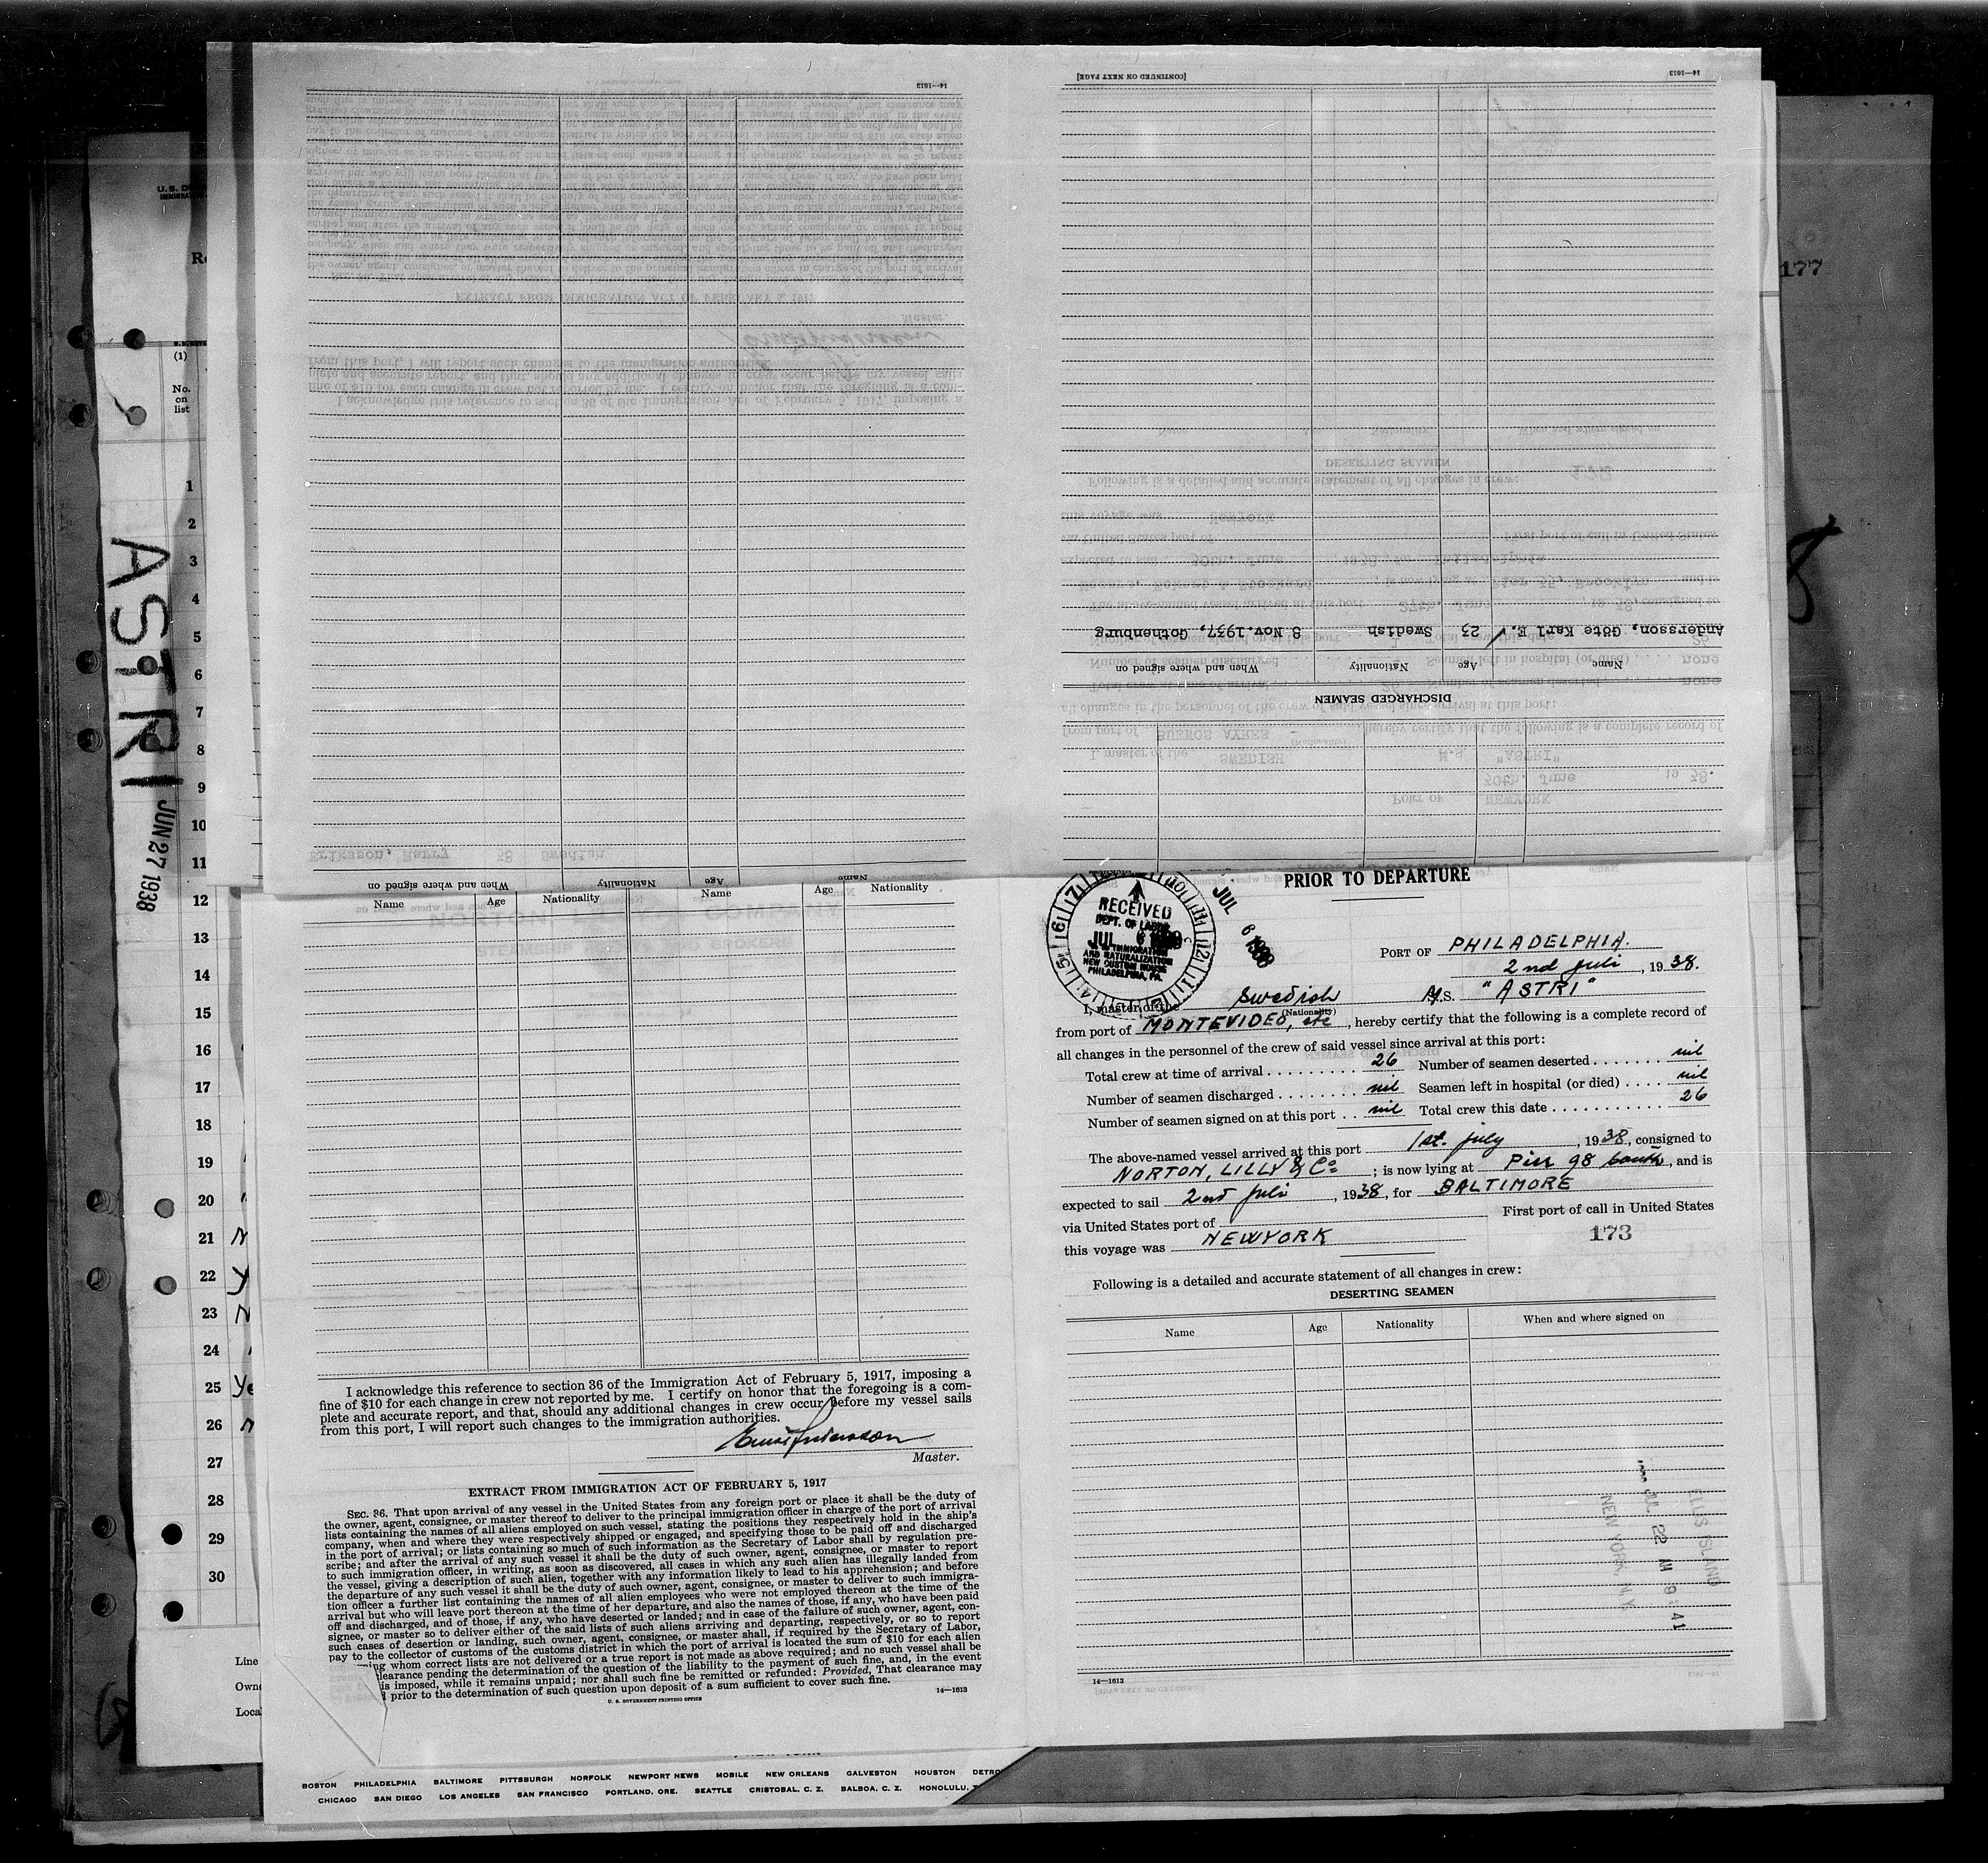 14—1613
[CONTINUED ON NEXT PAGE]
14—1613
177
U. S. D
(1)
No.
on
list
ASTRI
JUN 27 1938
1
2
3
4
5
6
7
8
9
10
11
12
13
14
15
16
17
18
19
20
21
22
23
24
25
26
27
28
29
30
Line
Owne
Loca
DISCHARGED SEAMEN
Name Age Nationality When and where signed on
Andersson, Göte Karl E. 23 Swedish 8 Nov.1937, Gothenburg
Name Age Nationality When and where signed on
Name Age Nationality Name Age Nationality
I acknowledge this reference to section 36 of the Immigration Act of February 5, 1917, imposing a
fine of $10 for each change in crew not reported by me. I certify on honor that the foregoing is a com-
plete and accurate report, and that, should any additional changes in crew occur before my vessel sails
from this port, I will report such changes to the immigration authorities.
Master.
EXTRACT FROM IMMIGRATION ACT OF FEBRUARY 5, 1917
SEC. 36. That upon arrival of any vessel in the United States from any foreign port or place it shall be the duty of
the owner, agent, consignee, or master thereof to deliver to the principal immigration officer in charge of the port of arrival
lists containing the names of all aliens employed on such vessel, stating the positions they respectively hold in the ship's
company, when and where they were respectively shipped or engaged, and specifying those to be paid off and discharged
in the port of arrival; or lists containing so much of such information as the Secretary of Labor shall by regulation pre-
scribe; and after the arrival of any such vessel it shall be the duty of such owner, agent, consignee, or master to report
to such immigration officer, in writing, as soon as discovered, all cases in which any such alien has illegally landed from
the vessel, giving a description of such alien, together with any information likely to lead to his apprehension; and before
the departure of any such vessel it shall be the duty of such owner, agent, consignee, or master to deliver to such immigra-
tion officer a further list containing the names of all alien employees who were not employed thereon at the time of the
arrival but who will leave port thereon at the time of her departure, and also the names of those, if any, who have been paid
off and discharged, and of those, if any, who have deserted or landed; and in case of the failure of such owner, agent, con-
signee, or master so to deliver either of the said lists of such aliens arriving and departing, respectively, or so to report
such cases of desertion or landing, such owner, agent, consignee, or master shall, if required by the Secretary of Labor,
pay to the collector of customs of the customs district in which the port of arrival is located the sum of $10 for each alien
whom correct lists are not delivered or a true report is not made as above required; and no such vessel shall be
learance pending the determination of the question of the liability to the payment of such fine, and, in the event
is imposed, while it remains unpaid; nor shall such fine be remitted or refunded: Provided, That clearance may
prior to the determination of such question upon deposit of a sum sufficient to cover such fine.
U. S. GOVERNMENT PRINTING OFFICE 14—1613
PRIOR TO DEPARTURE
RECEIVED
DEPT. OF LABOR
IMMIGRATION
AND NATURALIZATION
NEW CUSTOM HOUSE
PHILADELPHIA, PA.
JUL 6 1938
PORT OF PHILADELPHIA.
2nd juli, 1938.
I, master of the Swedish M.S. "ASTRI"
(Nationality)
from port of MONTEVIDEO, etc, hereby certify that the following is a complete record of
all changes in the personnel of the crew of said vessel since arrival at this port:
Total crew at time of arrival 26 Number of seamen deserted nil
Number of seamen discharged nil Seamen left in hospital (or died) nil
Number of seamen signed on at this port nil Total crew this date 26
The above-named vessel arrived at this port 1st. july, 1938, consigned to
NORTON, LILLY & Co; is now lying at Pier 98 South, and is
expected to sail 2nd juli, 1938, for BALTIMORE
via United States port of First port of call in United States
this voyage was NEWYORK 173
Following is a detailed and accurate statement of all changes in crew:
DESERTING SEAMEN
Name Age Nationality When and where signed on
ELLIS ISLAND
NEW YORK, N.Y.
22 AM 9:41
14—1613
BOSTON PHILADELPHIA BALTIMORE PITTSBURGH NORFOLK NEWPORT NEWS MOBILE NEW ORLEANS GALVESTON HOUSTON DETRO
CHICAGO SAN DIEGO LOS ANGELES SAN FRANCISCO PORTLAND, ORE. SEATTLE CRISTOBAL, C. Z. BALBOA, C. Z. HONOLULU,